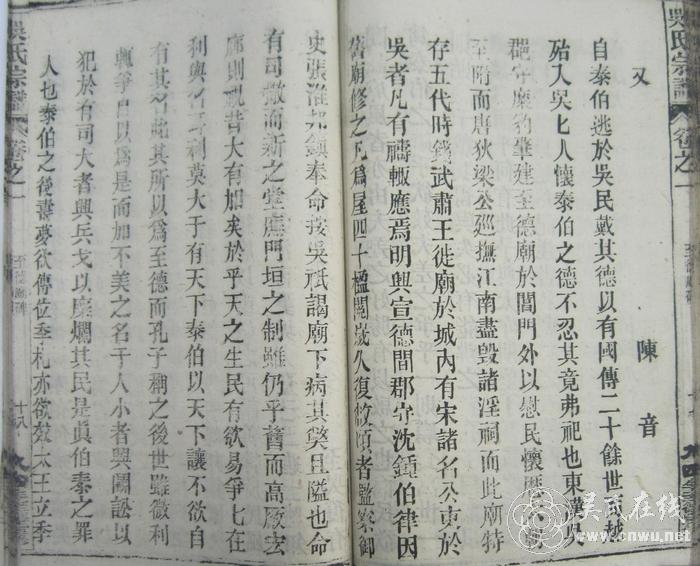 吳氏宗譜
卷之一
又
陳音
自泰伯逃於吳民戴其德以有國傳二十餘世 越
殆入吳七人懷泰伯之德不忍其竟弗祀也東漢吳
郡守糜豹肇建至德廟於閶門外以慰民懷歷
至隋而唐狄梁公廵撫江南盡毀諸淫祠而此廟特
存五代時錢武肅王徙廟於城內有宋諸名公東於
吳者凡有禱輒應焉明興宣德間郡守沈鍾伯律因
舊廟修之凡為屋四十楹閱歲久復敝頃者監察御
史張淮邦鎮奉命按吳祇謁廟下病其獘且隘也命
有司撤而新之堂廡門垣之制雖仍乎舊而高厰宏
廠則視昔大有加矣於乎天之生民有欲易爭七在
利與名耳利莫大于有天下泰伯以天下讓不欲自
有其名此其所以爲至德而孔子稱之後世雖微利
輒爭自以爲是而加不美之名于人小者興鬭訟以
犯於有司大者興兵戈以糜爛其民是眞伯泰之罪
人也泰伯之後壽夢欲傳位季札亦欲效太王立季
吳氏宗譜
卷之一
至德廟碑
十八
吳氏在线
www.cnwu.net